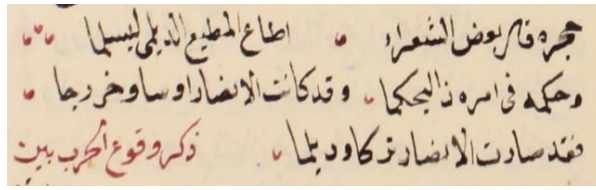 حجره قال بعض الشعراء اطاع المطيع الديلمى ليسلما
وحكمه فى امره ذا ليحكما وقد كانت الانصار اوسا وخزرجا
فقد صارت الانصار تركا وديلما ذكر وقوع الحرب بين